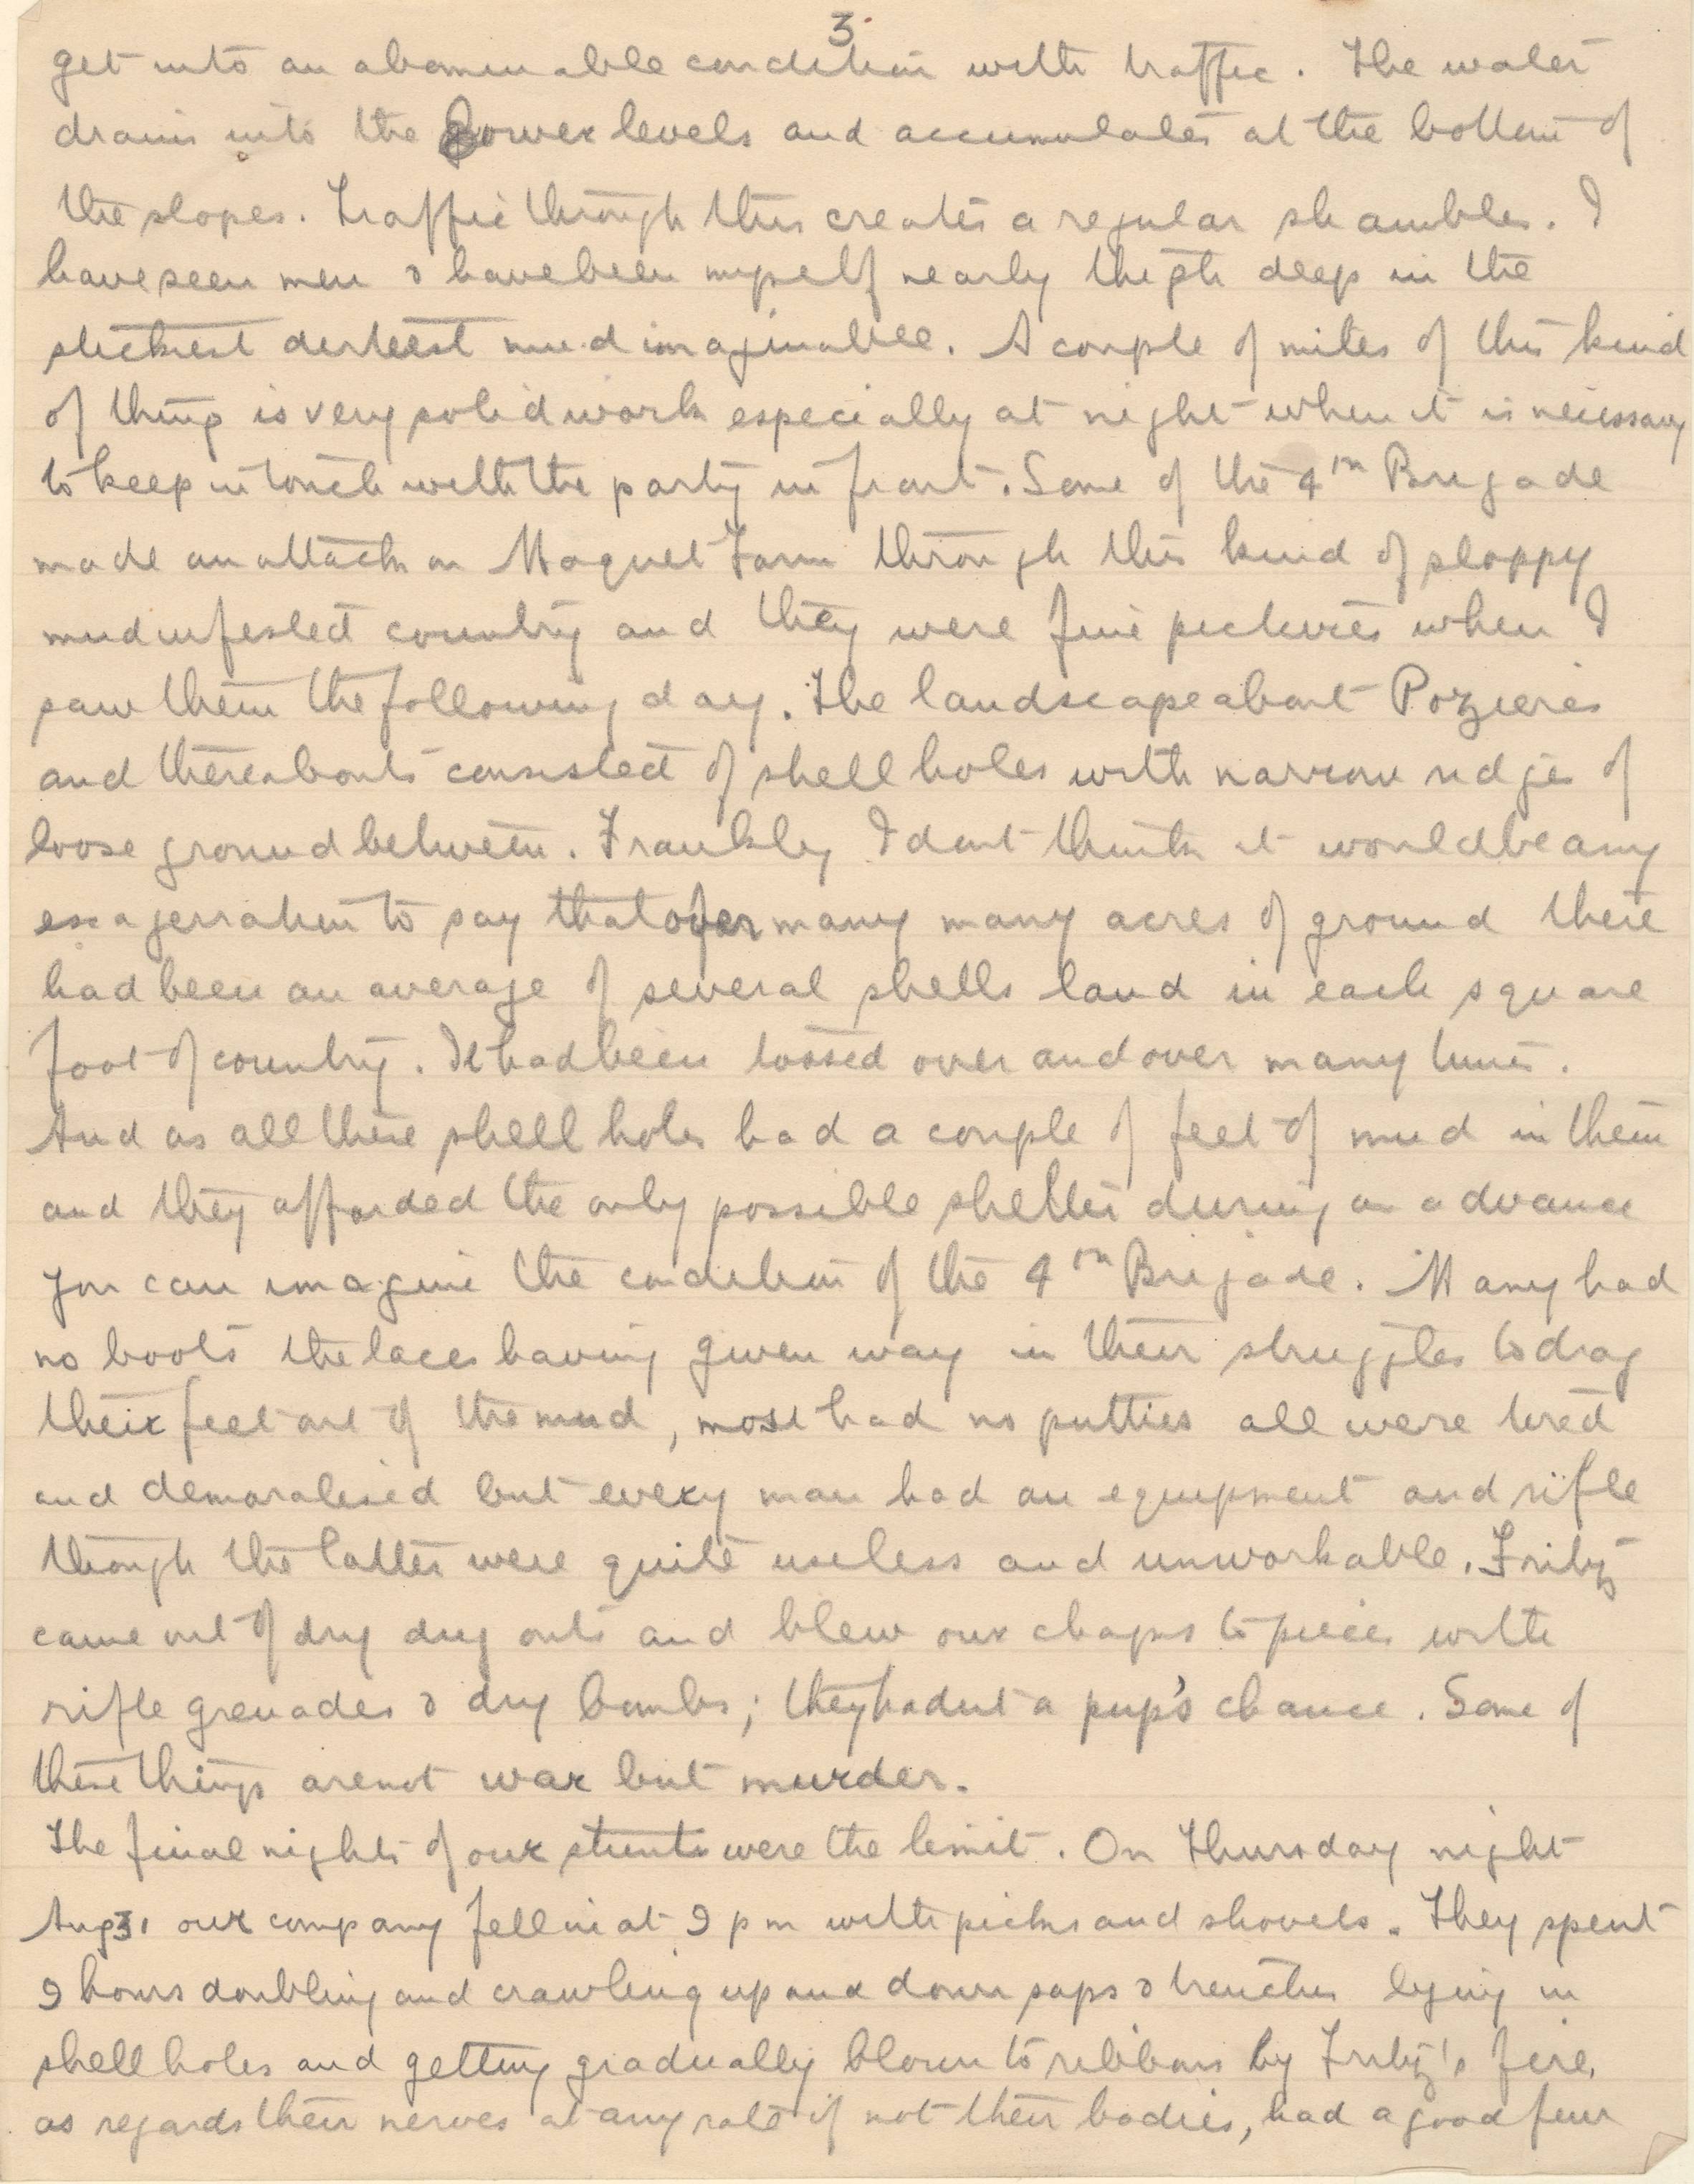 3.
get into an abominable condition with traffic. The water
drains into the lower levels and accumulates at the bottom of
the slopes. Traffic through this creates a regular shambles. I
have seen men & have been myself nearly thigh deep in the
stickiest dirtiest mud imaginable. A couple of miles of this kind
of thing is very solid work especially at night when it is necessary
to keep in touch with the party in front. Some of the 4th Brigade
made an attack on Moquet Farm through this kind of sloppy
mud infested country and they were fine pictures when I
saw them the following day. The landscape about Pozieres
and thereabouts consisted of shell holes with narrow ridges of
loose ground between. Frankly I dont think it would be any
exagerration to say that over many many acres of ground there
had been an average of several shells land in each square
foot of country. It had been tossed over and over many times.
And as all these shell holes had a couple of feet of mud in them
and they afforded the only possible shelter during an advance
you can imagine the condition of the 4th Brigade. Many had
no boots the laces having given way in their struggles to drag
their feet out of the mud, most had no putties all were tired
and demoralised but every man had an equipment and rifle
though the latter were quite useless and unworkable. Fritz
came out of dry dug outs and blew our chaps to pieces with
rifle grenades & dry bombs; they hadnt a pup's chance. Some of
these things are not war but murder.
The final nights of our stunts were the limit. On Thursday night
Aug 31 our company fell in at 9 pm with picks and shovels. They spent
9 hours doubling and crawling up and down saps & trenches lying in
shell holes and getting gradually blown to ribbons by Fritz's fire,
as regards their nerves at any rate if not their bodies, had a good few